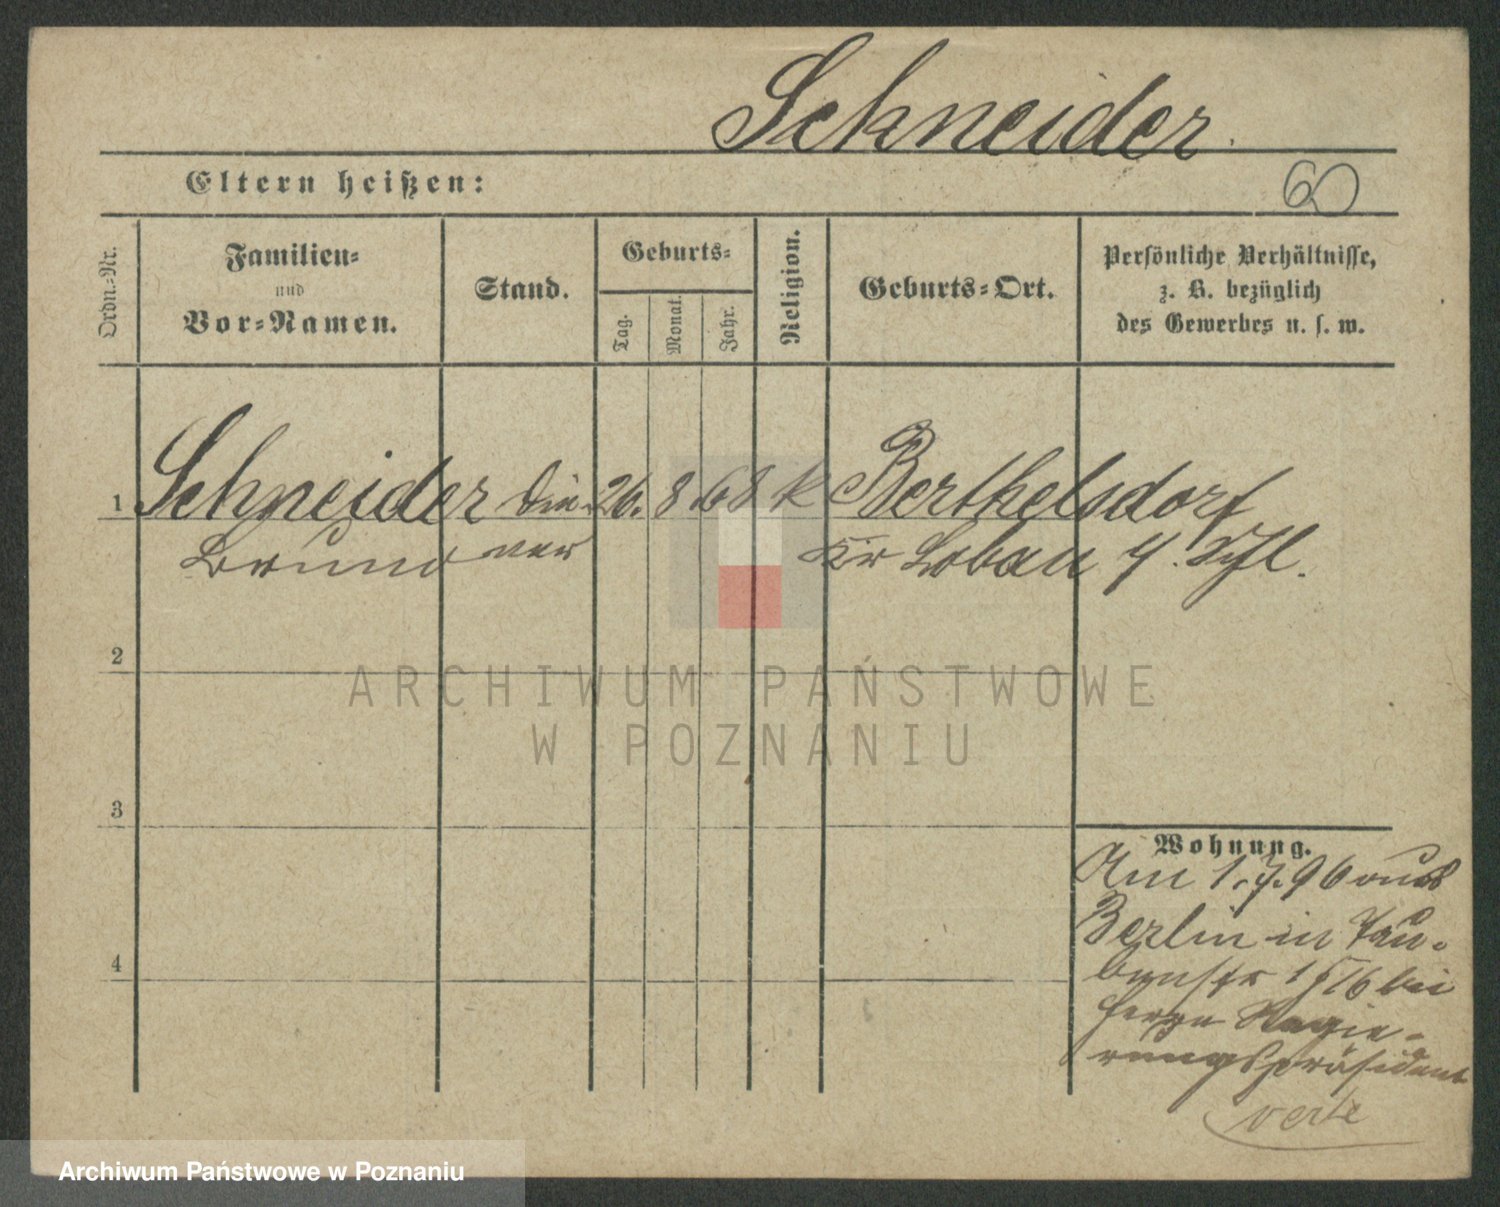 Schneider
Eltern heißen:
60
Ordn.-Nr.
Familien-
und
Vor-Namen.
Stand.
Geburts-
Tag.
Monat.
Jahr.
Religion.
Geburts-Ort.
Persönliche Verhältnisse,
z. B. bezüglich
des Gewerbes u. s. w.
1 Schneider Die- 26. 8. 68 k Berthelsdorf
Bruno ner Kr Lobau
2
3
4
ARCHIWUM PAŃSTWOWE
W POZNANIU
Wohnung.
Am 1.7.96 aus
Berlin in Tau-
benstr 15/16 bei
Herrn Regie-
rungspräsident
verte
Archiwum Państwowe w Poznaniu